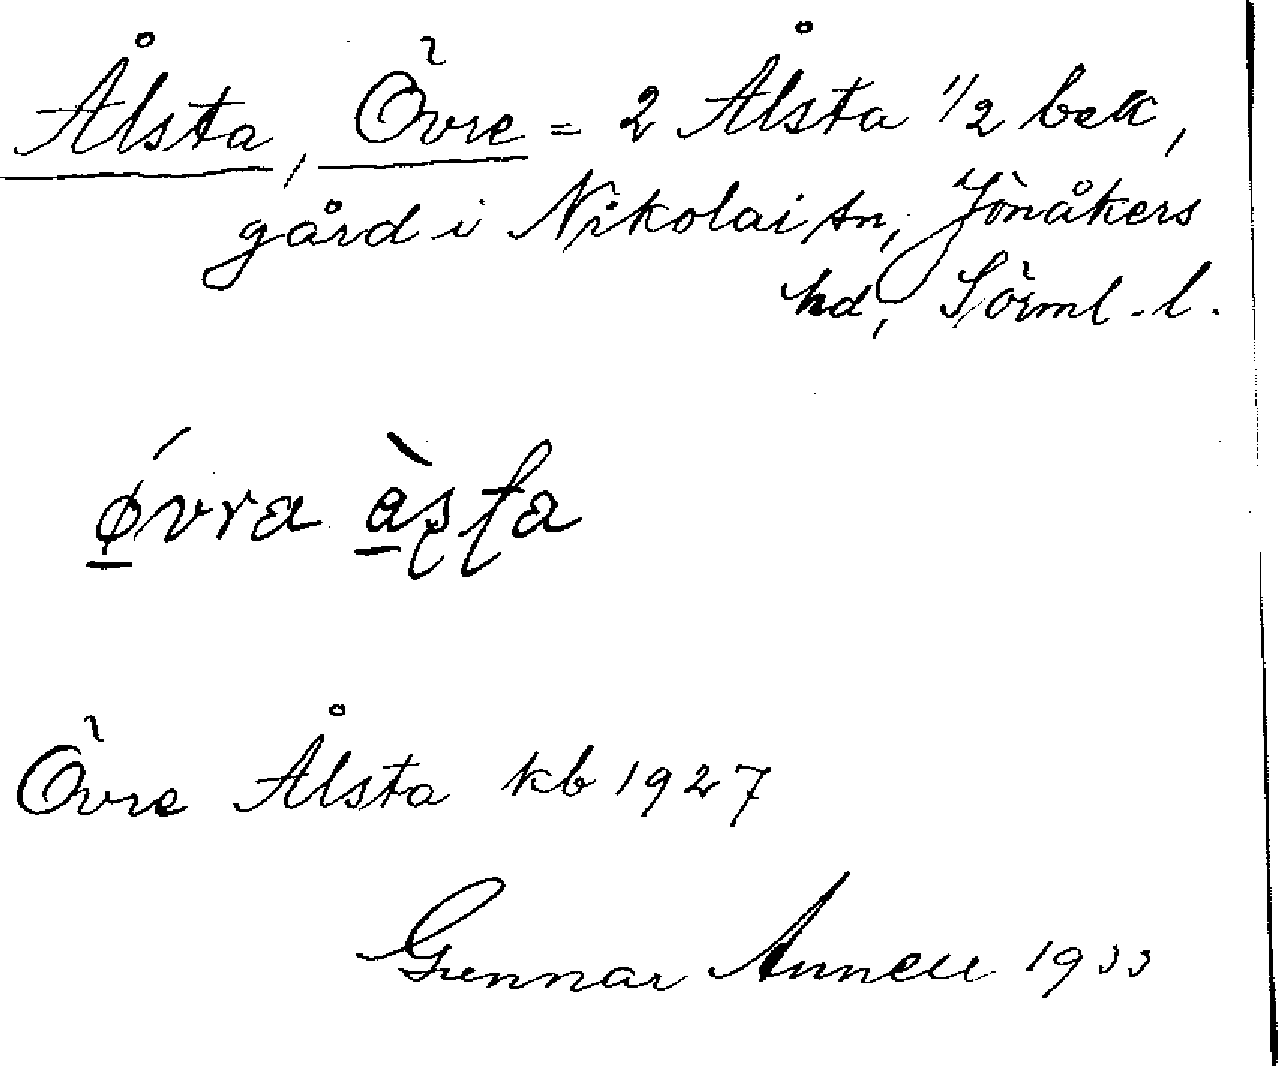 Ålsta, Övre = 2 Ålsta 1/2 bek,
gård i Nikolai sn, Jönåkers
hd, Sörml. l.
øvra
Övre Ålsta kb 1927
Gunnar Annell 1933